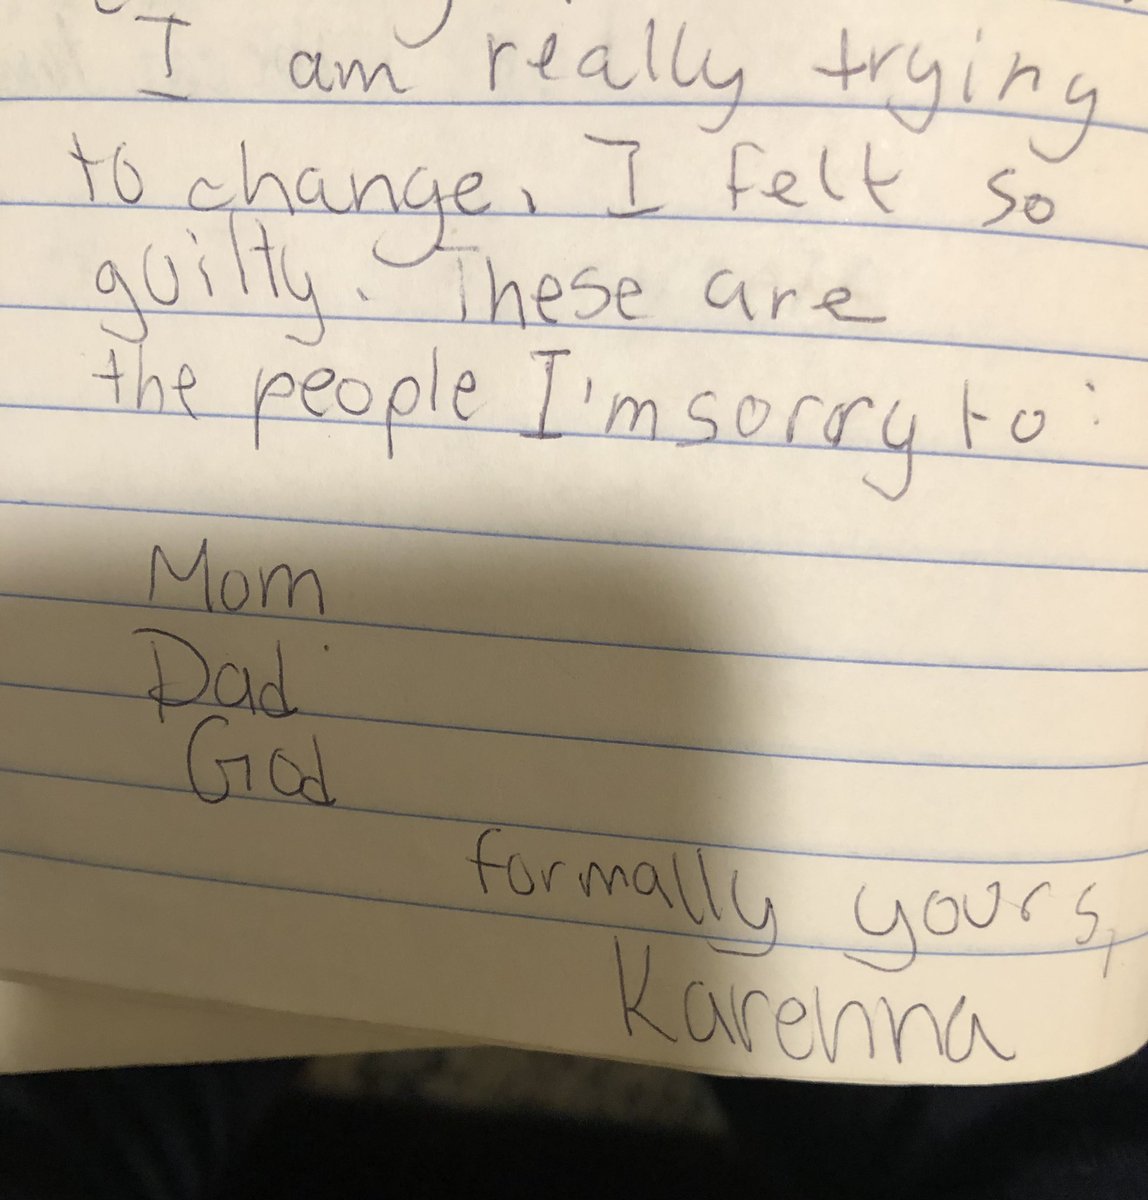 I am really trying
to change. I felt so
guilty. These are
the people I'm sorry to:
Mom
Dad
God
formally yours,
Karenna